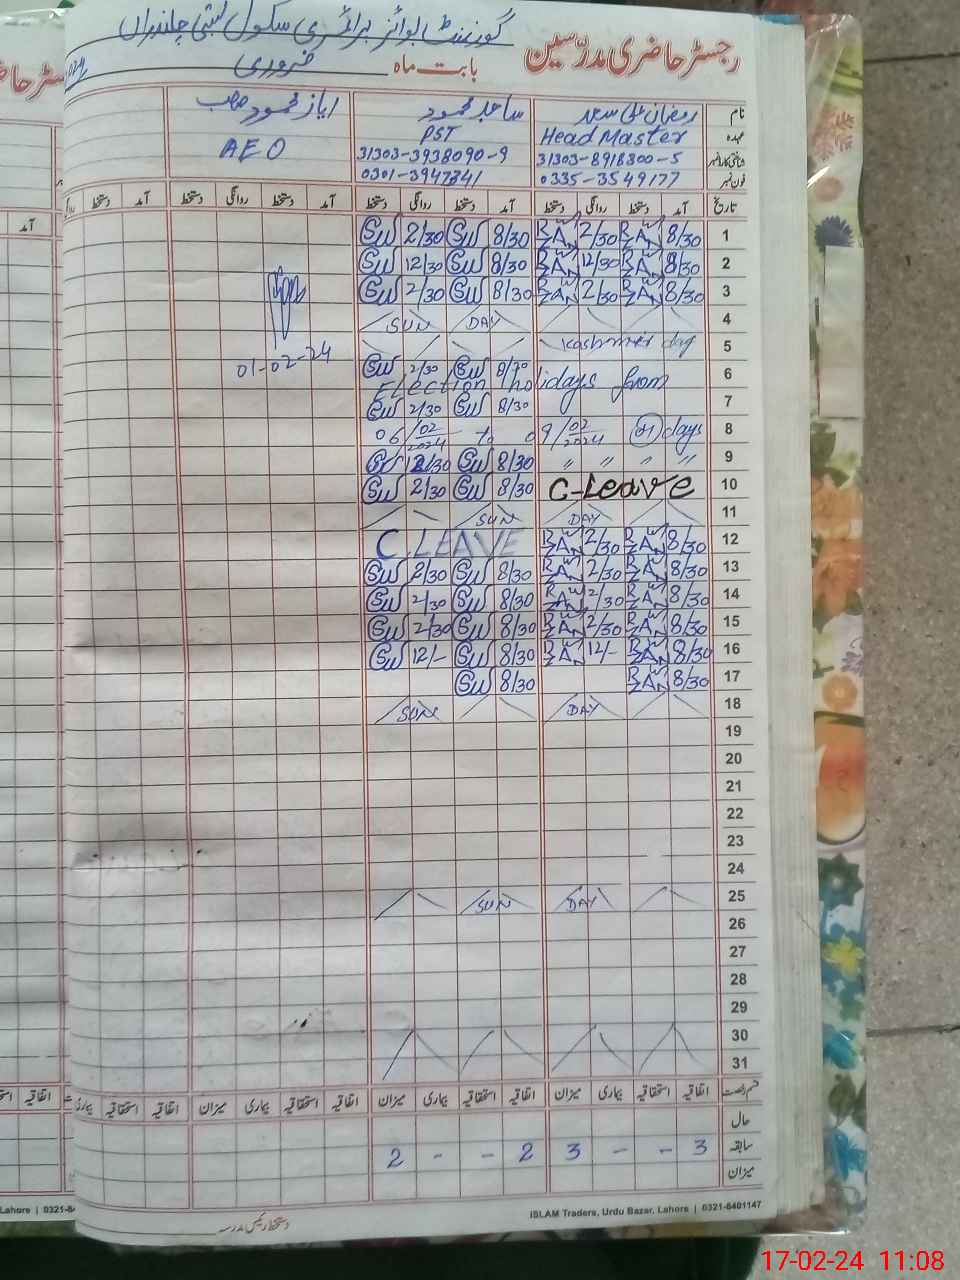 رجسٹر حاضری مدرّسین
گورنمنٹ بوائز پرائمری سکول بستی چاندراں
بابت ماہ فروری
نام رمضان علی سعد ساجد محمود ایاز محمود صاحب
عہدہ Head Master PST AEO
شناختی کارڈ نمبر 31303-8918300-5 31303-3938090-9
فون نمبر 0335-3549177 0301-3947341
تاریخ آمد دستخط روانگی دستخط آمد دستخط روانگی دستخط آمد دستخط روانگی دستخط آمد دستخط
1 8/30 RAW 2/30 RAW 8/30 SW 2/30 SW
2 8/30 RAW 12/30 RAW 8/30 SW 12/30 SW
3 8/30 RAW 2/30 RAW 8/30 SW 2/30 SW
4 SUN DAY
5 Kashmir day
6 SW 2/30 SW 8/30
01-02-24
Election holidays from
7 SW 2/30 SW 8/30
8 06/02/2024 to 09/02/2024 days
9 SW 12/30 SW 8/30 〃 〃 〃 〃
10 SW 2/30 SW 8/30 C-Leave
11 SUN DAY
12 C.LEAVE RAW 2/30 RAW 8/30
13 SW 2/30 SW 8/30 RAW 2/30 RAW 8/30
14 SW 2/30 SW 8/30 RAW 2/30 RAW 8/30
15 SW 2/30 SW 8/30 RAW 2/30 RAW 8/30
16 SW 12/- SW 8/30 RAW 12/- RAW 8/30
17 SW 8/30 RAW 8/30
18 SUN DAY
19
20
21
22
23
24
25 SUN DAY
26
27
28
29
30
31
قسم رخصت اتفاقیہ استحقاقیہ بیماری میزان اتفاقیہ استحقاقیہ بیماری میزان اتفاقیہ استحقاقیہ بیماری میزان اتفاقیہ استحقاقیہ بیماری
حال
سابقہ 3 - - 3 2 - - 2
میزان
ISLAM Traders, Urdu Bazar, Lahore | 0321-8401147
دستخط رئیس مدرسہ
Lahore | 0321-8
17-02-24 11:08